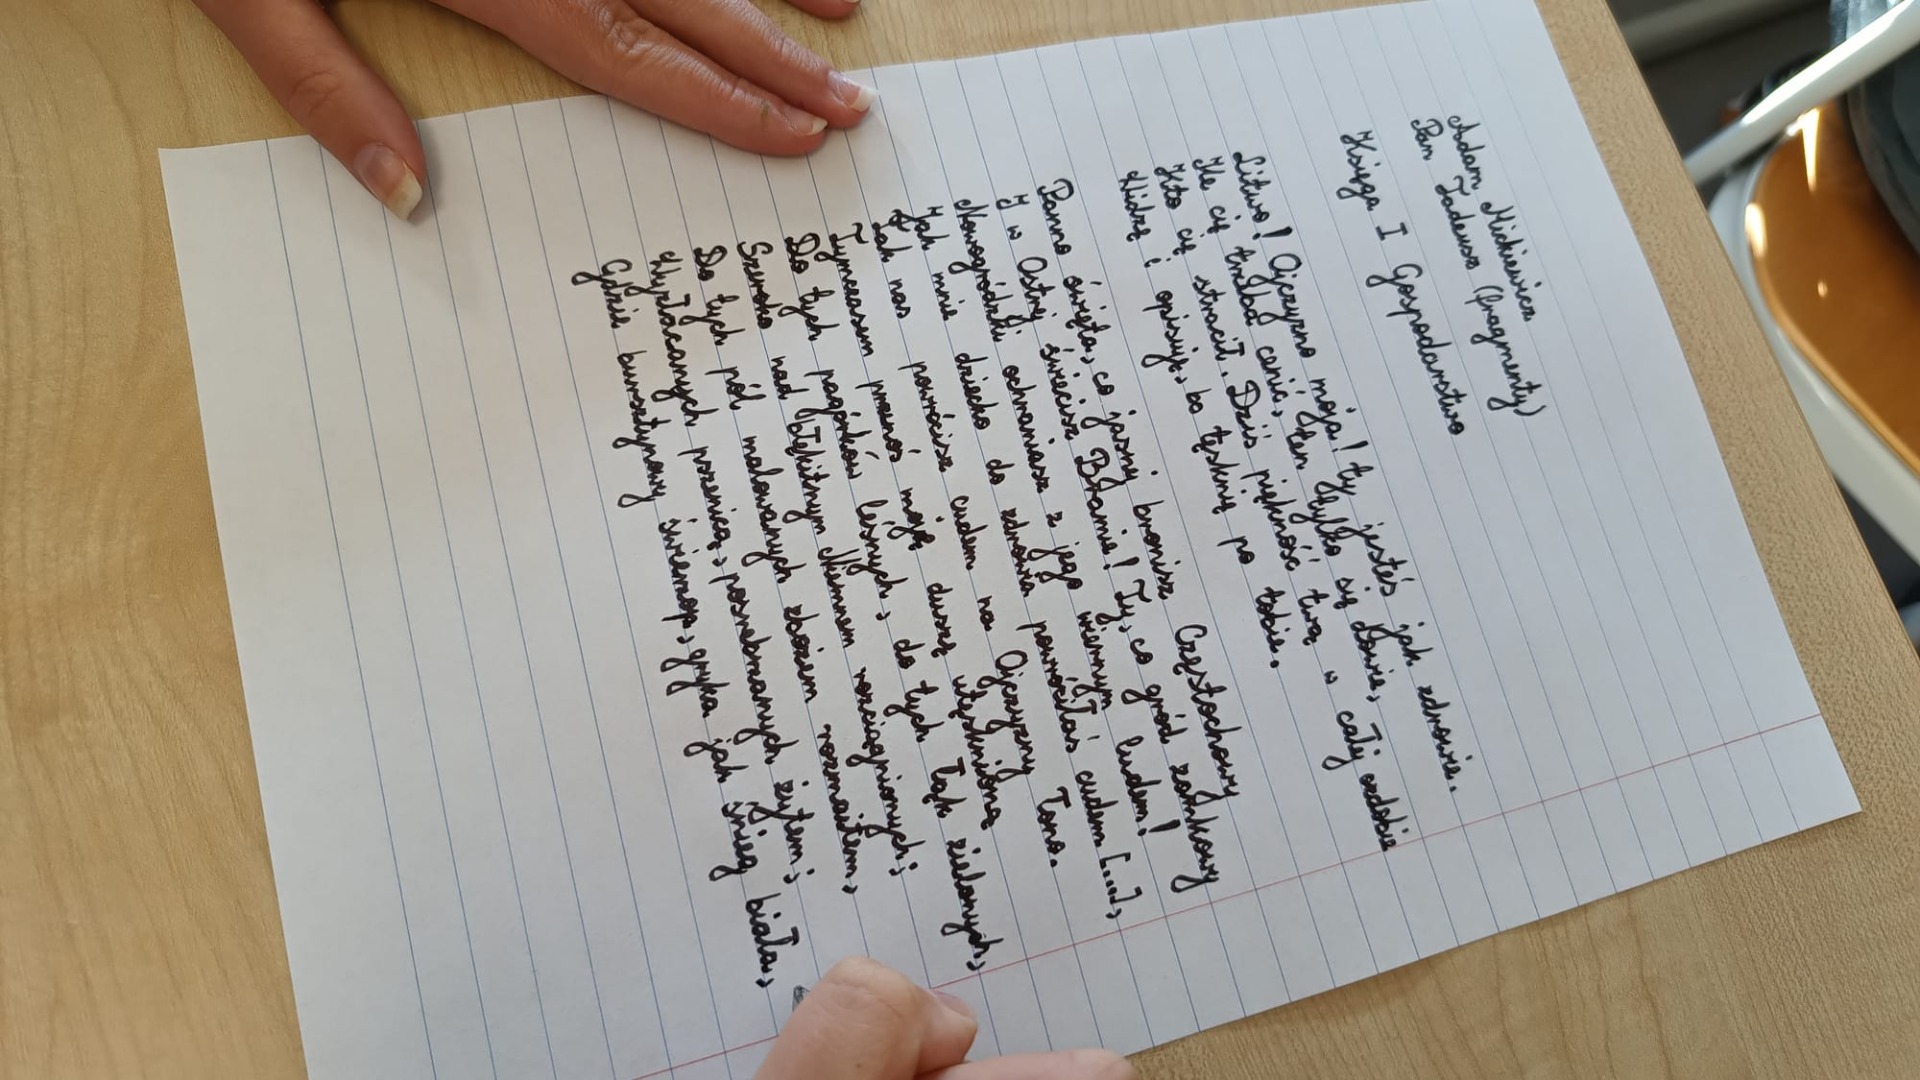 Adam Mickiewicz
Pan Tadeusz (fragmenty)
Księga I Gospodarstwo
Litwo! Ojczyzno moja! ty jesteś jak zdrowie.
Ile cię trzeba cenić, ten tylko się dowie,
Kto cię stracił. Dziś piękność twą w całej ozdobie
Widzę i opisuję, bo tęsknię po tobie.
Panno święta, co jasnej bronisz Częstochowy
I w Ostrej świecisz Bramie! Ty, co gród zamkowy
Nowogródzki ochraniasz z jego wiernym ludem!
Jak mnie dziecko do zdrowia powróciłaś cudem [...],
Tak nas powrócisz cudem na Ojczyzny łono.
Tymczasem przenoś moję duszę utęsknioną
Do tych pagórków leśnych, do tych łąk zielonych,
Szeroko nad błękitnym Niemnem rozciągnionych;
Do tych pól malowanych zbożem rozmaitem,
Wyzłacanych pszenicą, posrebrzanych żytem;
Gdzie bursztynowy świerzop, gryka jak śnieg biała,